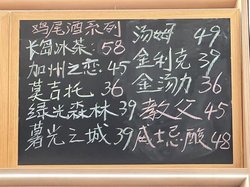 鸡尾酒系列
长岛冰茶:58
加州之恋.45
莫吉托.36
绿光森林39
暮光之城39
汤姆 49
金利克39
金汤力36
教父45
威士忌酸48